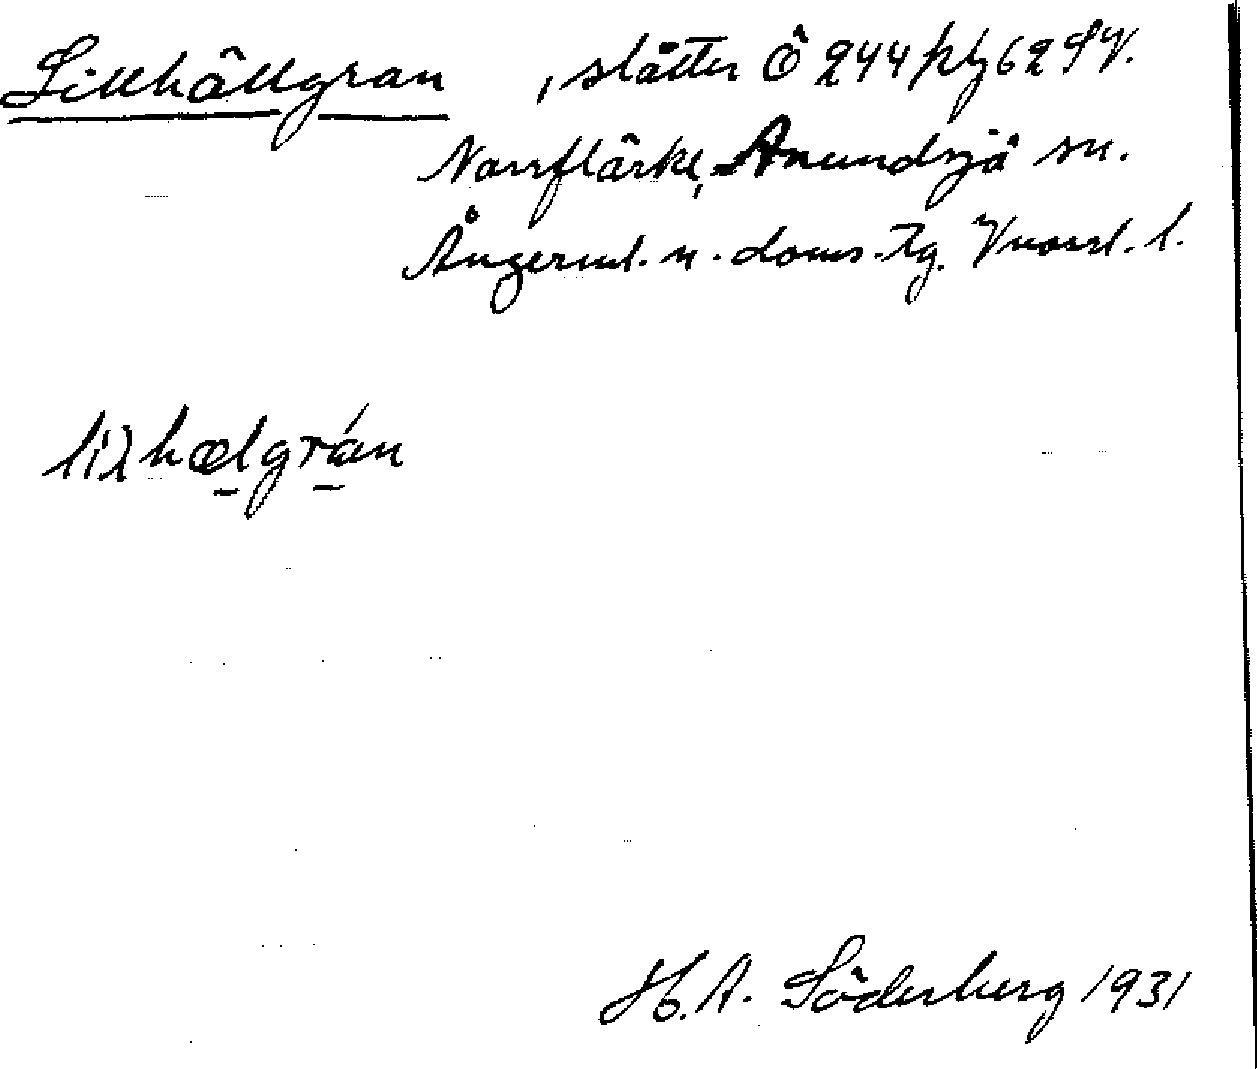 Lillhällgran , slåtter Ö 244 på 62 SV.
Norrflärke, Anundsjö sn.
Ångerml. n. doms.-Tg. Vnorrl. l.
lilhælgrán
H. A. Söderberg 1931